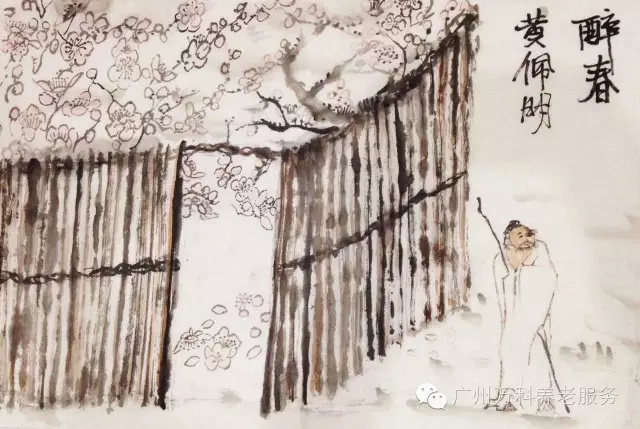 醉春
黄佩明
广州万科养老服务